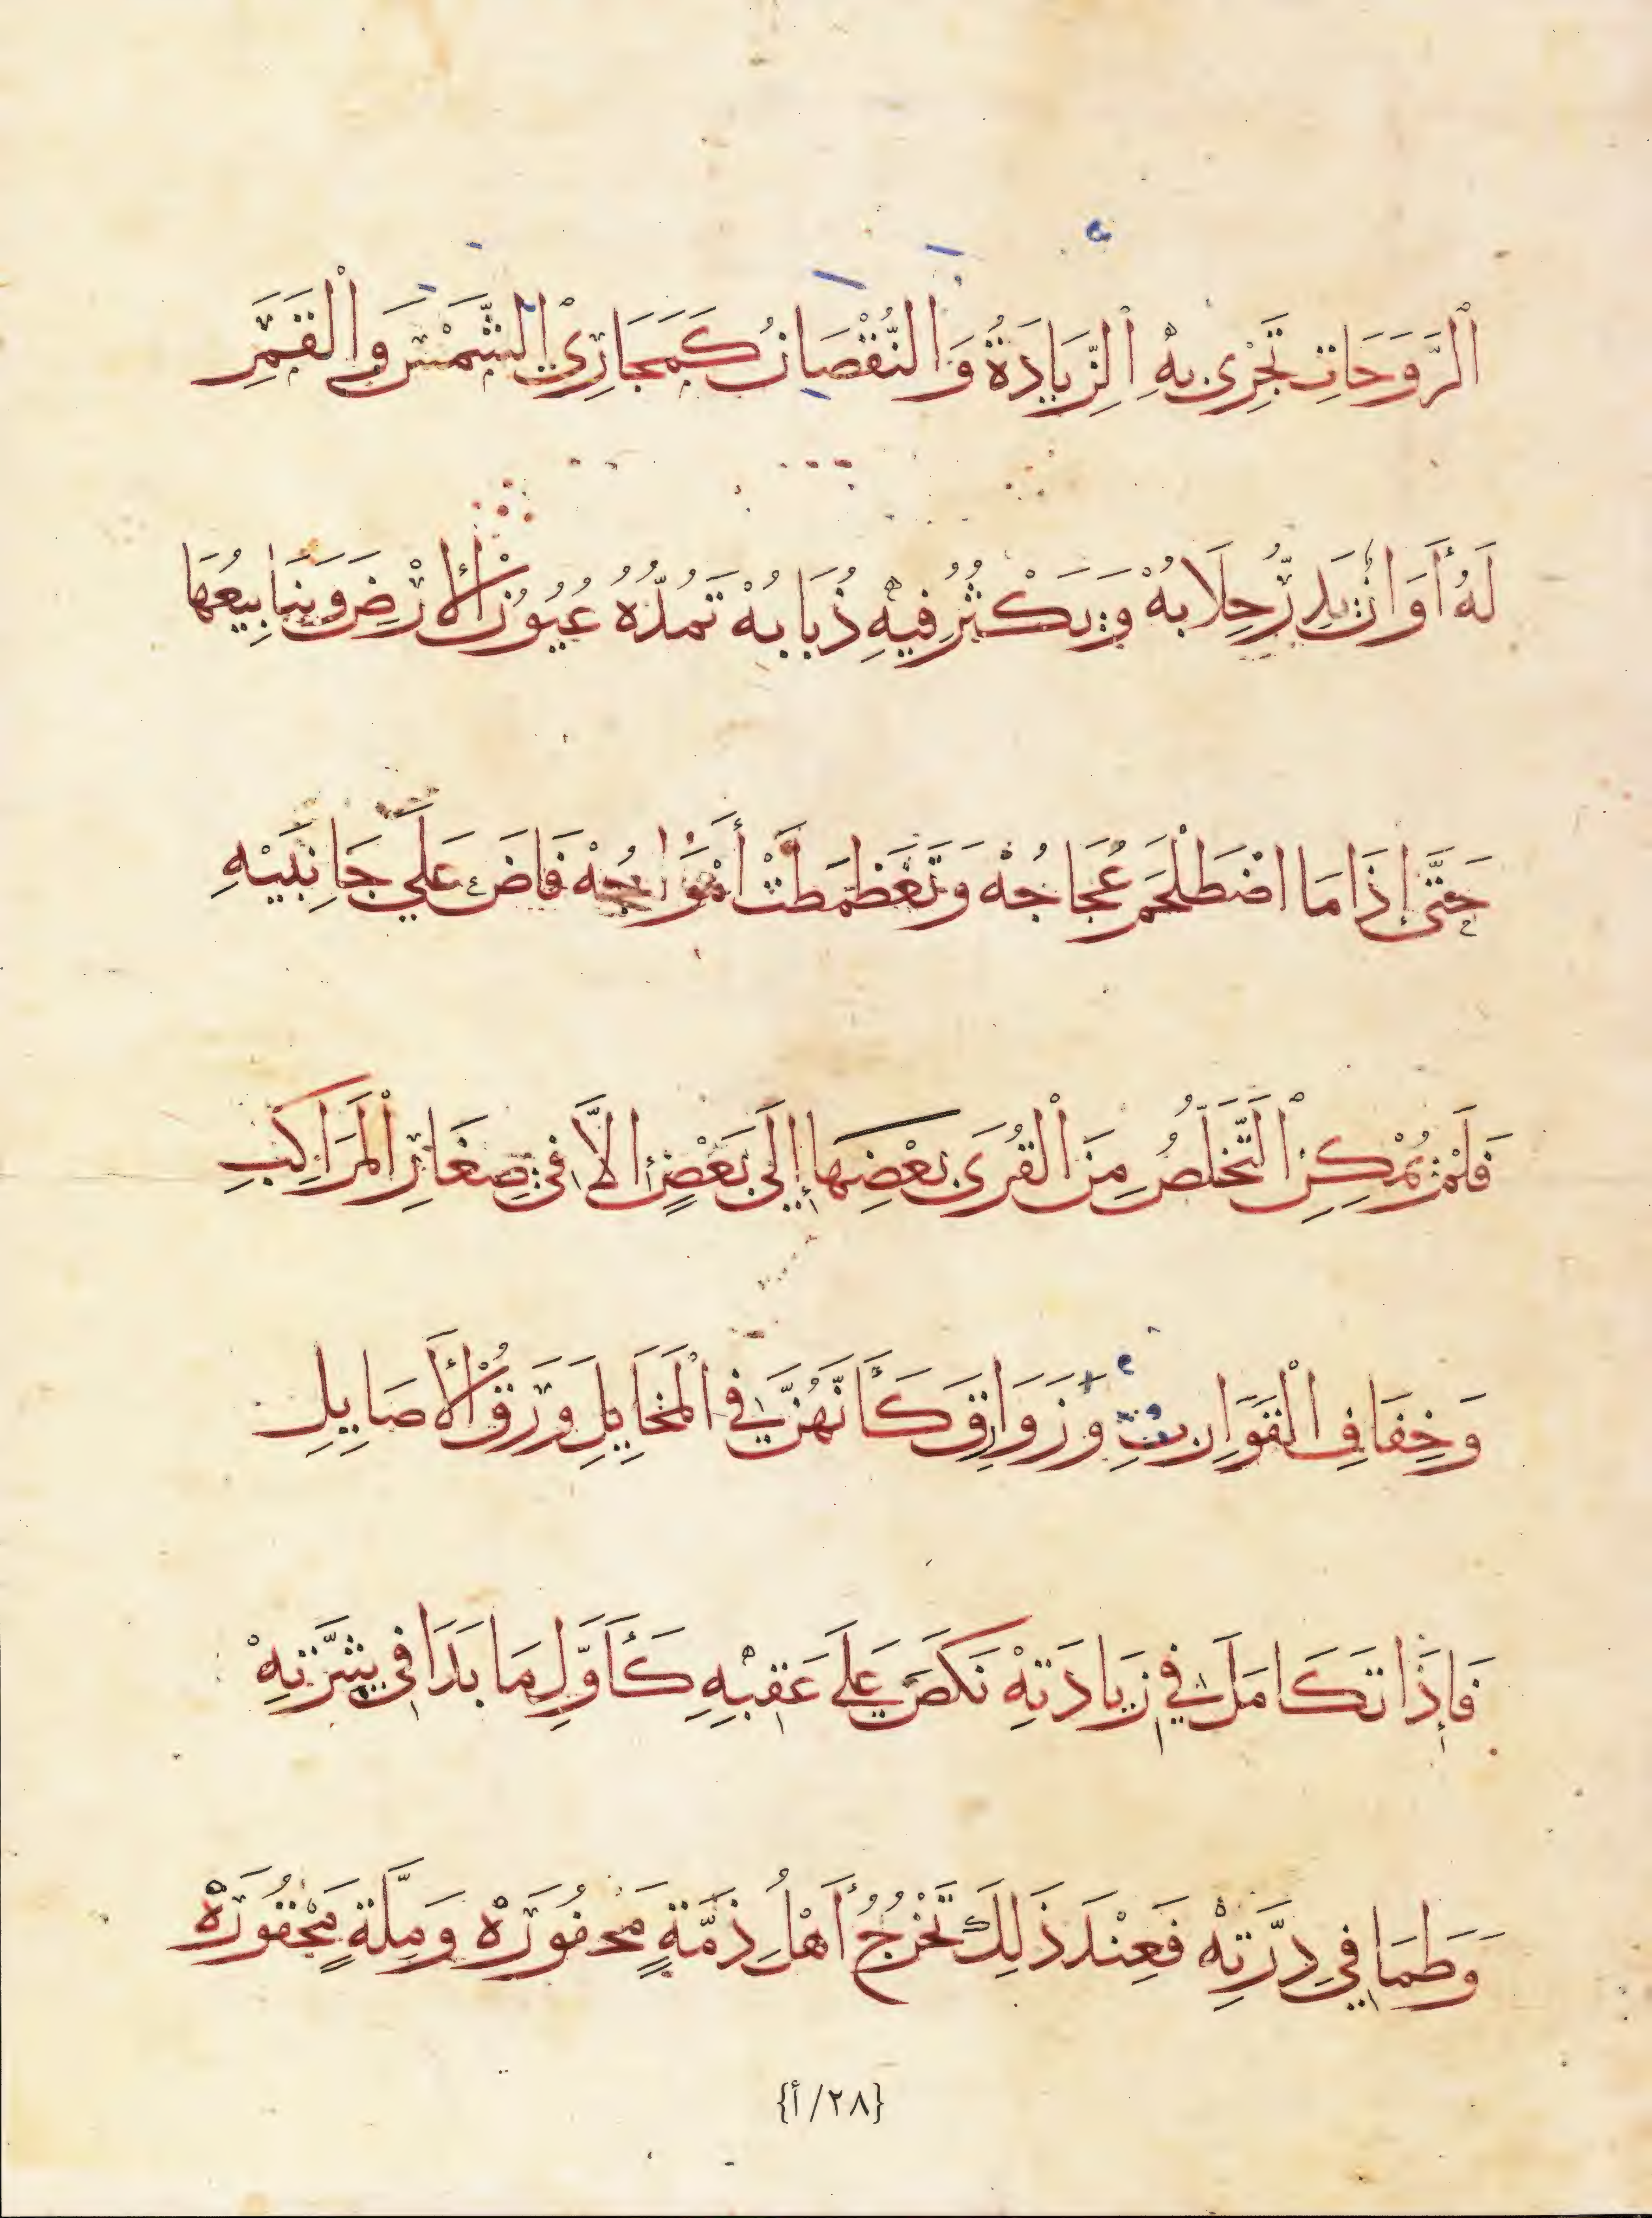 ٱلرَّوَحَاتِ تَجْرِى بِهِ ٱلزِّيَادَةُ وَالنُّقْصَانُ كَمَجَارِيْ الشَّمْسِ وَالْقَمَرِ
لَهُ أَوَانٌ يَدِرُّ حِلَابُهْ وَيَكْثُرُ فِيهِ ذُبَابُهْ تَمُدُّهُ عُيُونُ الْأَرْضِ وَيَنَابِيعُهَا
حَتَّى إِذَا مَا اضْطَلْخَمَ عُجَاجُهْ وَتَغَظْمَطَتْ أَمْوَاجُهْ فَاضَ عَلَي جَانِبَيْهِ
فَلَمْ يُمْكِنِ ٱلتَّخَلُّصُ مِنَ الْقُرَى بَعْضِهَا إِلَى بَعْضٍ الَّا فِى صِغَارِ الْمَرَاكِبِ
وَخِفَافِ الْقَوَارِبِ وَزَوَارِقَ كَأَنَّهُنَّ فِي الْمَخَايِلِ وَرَقُ الْأَصَايِلِ
فَإِذَا تَكَامَلَ فِي زِيَادَتِهْ نَكَصَ عَلَي عَقِبِهِ كَأَوَّلِ مَا بَدَا فِى شِرَّتِهْ
وَطَمَا فِي دِرَّتِهْ فَعِنْدَ ذَلِكَ تَخْرُجُ أَهْلُ ذِمَّةٍ مَحْفُورَهْ وَمِلَّةٍ مَحْقُورَهْ
{٢٨/أ}